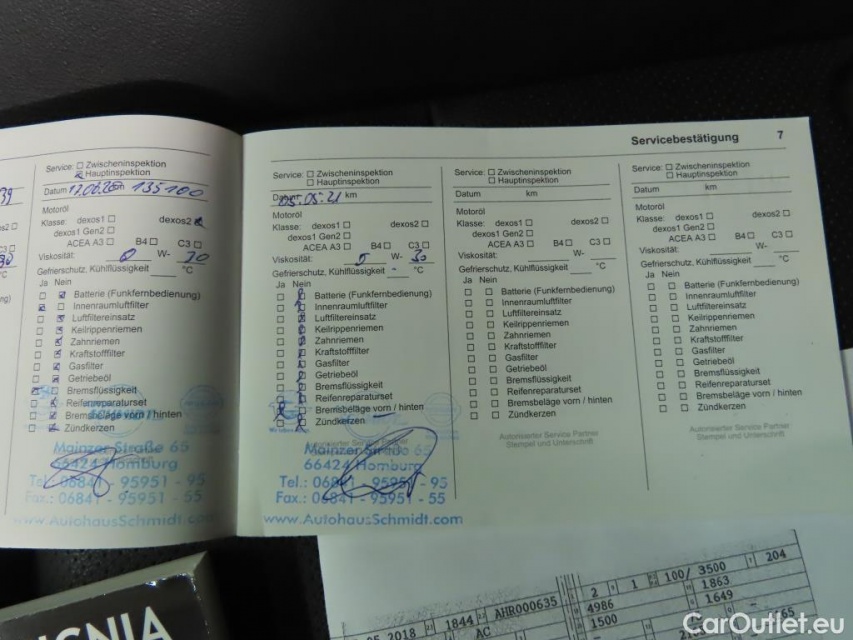 Servicebestätigung 7
Service: □ Zwischeninspektion
☒ Hauptinspektion
Datum 17.06.20 km 135100
Motoröl
Klasse: dexos1 □ dexos2 ☒
dexos1 Gen2 □
ACEA A3 □ B4 □ C3 □
Viskosität: 0 W-
Gefrierschutz, Kühlflüssigkeit °C
Ja Nein
Batterie (Funkfernbedienung)
Innenraumluftfilter
Luftfiltereinsatz
Keilrippenriemen
Zahnriemen
Kraftstofffilter
Gasfilter
Getriebeöl
Bremsflüssigkeit
Reifenreparaturset
Bremsbeläge vorn / hinten
Zündkerzen
Mainzer Straße 65
66424 Homburg
Tel.: 06841 - 95951 - 95
Fax.: 06841 - 95951 - 55
www.AutohausSchmidt.com
Service: □ Zwischeninspektion
□ Hauptinspektion
Datum 05.05.21 km
Motoröl
Klasse: dexos1 □ dexos2 □
dexos1 Gen2 □
ACEA A3 □ B4 □ C3 □
Viskosität: 5 W- 30
Gefrierschutz, Kühlflüssigkeit - °C
Ja Nein
Batterie (Funkfernbedienung)
Innenraumluftfilter
Luftfiltereinsatz
Keilrippenriemen
Zahnriemen
Kraftstofffilter
Gasfilter
Getriebeöl
Bremsflüssigkeit
Reifenreparaturset
Bremsbeläge vorn / hinten
Zündkerzen
Mainzer Straße 65
66424 Homburg
Tel.: 06841 - 95951 - 95
Fax.: 06841 - 95951 - 55
www.AutohausSchmidt.com
Service: □ Zwischeninspektion
□ Hauptinspektion
Datum km
Motoröl
Klasse: dexos1 □ dexos2 □
dexos1 Gen2 □
ACEA A3 □ B4 □ C3 □
Viskosität: W-
Gefrierschutz, Kühlflüssigkeit °C
Ja Nein
□ □ Batterie (Funkfernbedienung)
□ □ Innenraumluftfilter
□ □ Luftfiltereinsatz
□ □ Keilrippenriemen
□ □ Zahnriemen
□ □ Kraftstofffilter
□ □ Gasfilter
□ □ Getriebeöl
□ □ Bremsflüssigkeit
□ □ Reifenreparaturset
□ □ Bremsbeläge vorn / hinten
□ □ Zündkerzen
Autorisierter Service Partner
Stempel und Unterschrift
Service: □ Zwischeninspektion
□ Hauptinspektion
Datum km
Motoröl
Klasse: dexos1 □ dexos2 □
dexos1 Gen2 □
ACEA A3 □ B4 □ C3 □
Viskosität: W-
Gefrierschutz, Kühlflüssigkeit °C
Ja Nein
□ □ Batterie (Funkfernbedienung)
□ □ Innenraumluftfilter
□ □ Luftfiltereinsatz
□ □ Keilrippenriemen
□ □ Zahnriemen
□ □ Kraftstofffilter
□ □ Gasfilter
□ □ Getriebeöl
□ □ Bremsflüssigkeit
□ □ Reifenreparaturset
□ □ Bremsbeläge vorn / hinten
□ □ Zündkerzen
Autorisierter Service Partner
Stempel und Unterschrift
2 1 100/ 3500 204
2018 1844 AHR000635 4986 1863
AC 1500 1649
CarOutlet.eu